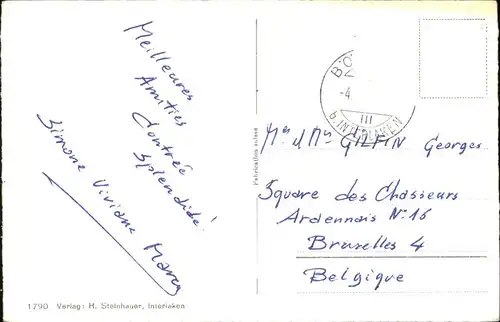 Meilleures
Amitiés
Contrée
splendide.
Simone Viviane Marcy
BÖ
-4.
III
b. INTERLAKEN
Fabrication suisse
Mr & Mme GILAIN Georges
Square des Chasseurs
Ardennais N°16
Bruxelles 4
Belgique
1790 Verlag: H. Steinhauer, Interlaken